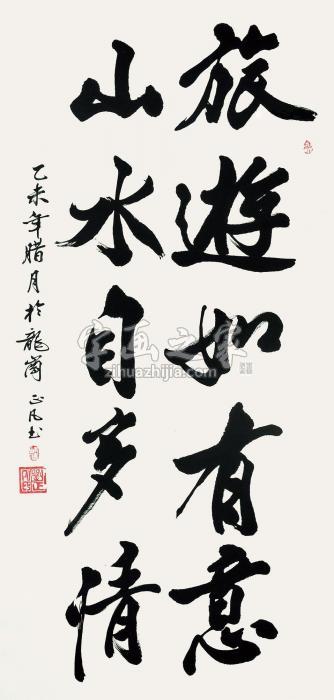 旅遊如有意
山水自多情
乙未年腊月於龍蘭正凡书
字画之家
zihuazhijia.com